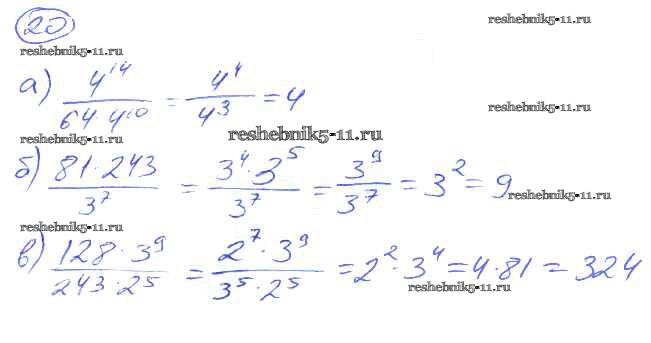 20
reshebnik5-11.ru
reshebnik5-11.ru
а) 4^14 / (64 · 4^10) = 4^4 / 4^3 = 4
reshebnik5-11.ru
reshebnik5-11.ru
reshebnik5-11.ru
б) (81 · 243) / 3^7 = (3^4 · 3^5) / 3^7 = 3^9 / 3^7 = 3^2 = 9
reshebnik5-11.ru
reshebnik5-11.ru
в) (128 · 3^9) / (243 · 2^5) = (2^7 · 3^9) / (3^5 · 2^5) = 2^2 · 3^4 = 4 · 81 = 324
reshebnik5-11.ru